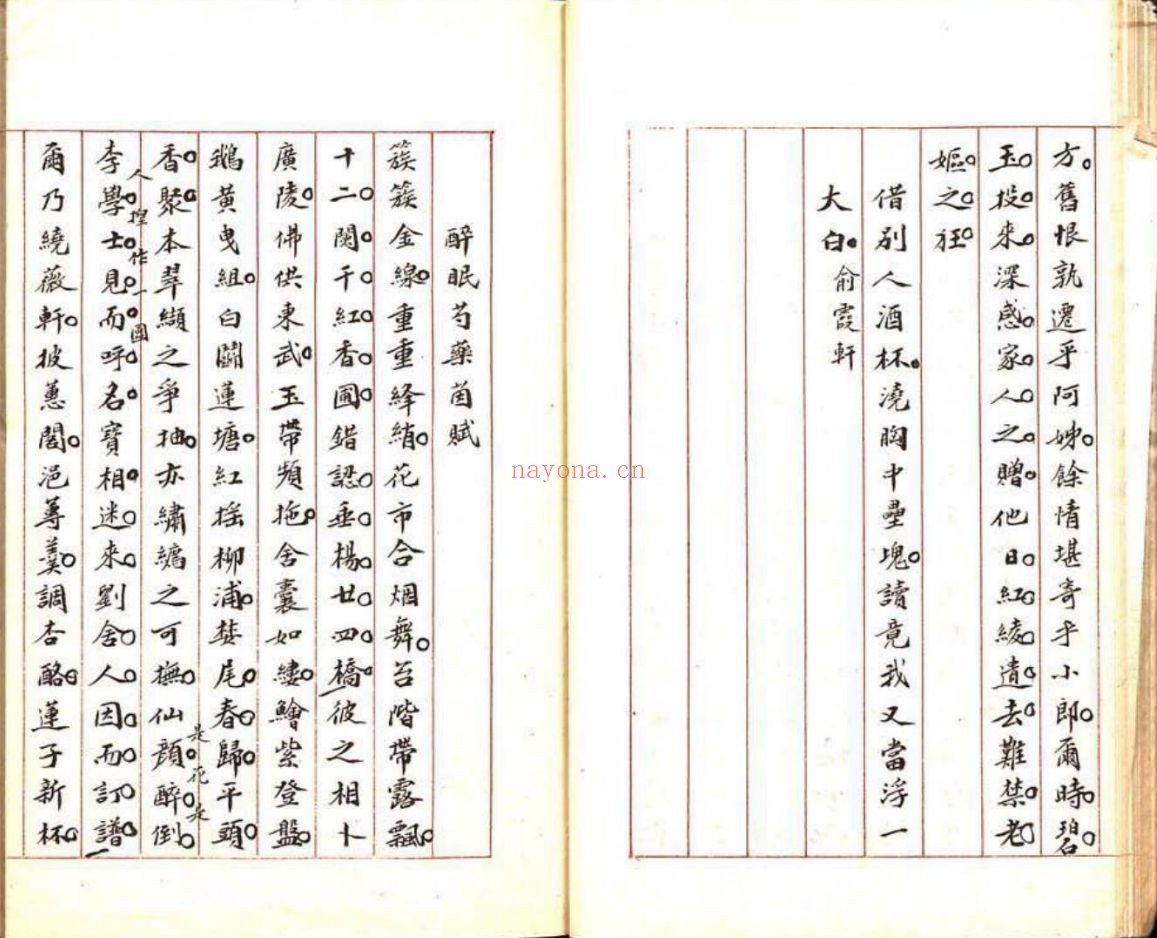 方舊恨孰遷乎阿姊餘情堪寄乎小郎爾時碧
玉投來深感家人之贈他日紅綾遺去難禁老
嫗之狂
借别人酒杯澆胸中壘塊讀竟我又當浮一
大白俞霞軒
醉眠芍藥茵賦
簇簇金線重重絳綃花市合烟舞苔階帶露飄
十二闌干紅香圃錯認垂楊廿四橋彼之相卜
廣陵佛供東武玉帶頻拖舍囊如縷鱠紫登盤
鵝黄曳組白鬭蓮塘紅摇柳浦婪尾春歸平頭
香聚本翠纈之爭抽亦繡纈之可撫仙顔醉倒
是花是
人揑作一圖
李學士見而呼名寶相迷來劉舍人因而訂譜
爾乃繞薇軒披蕙閣浥蓴羹調杏酪蓮子新杯
nayona.cn